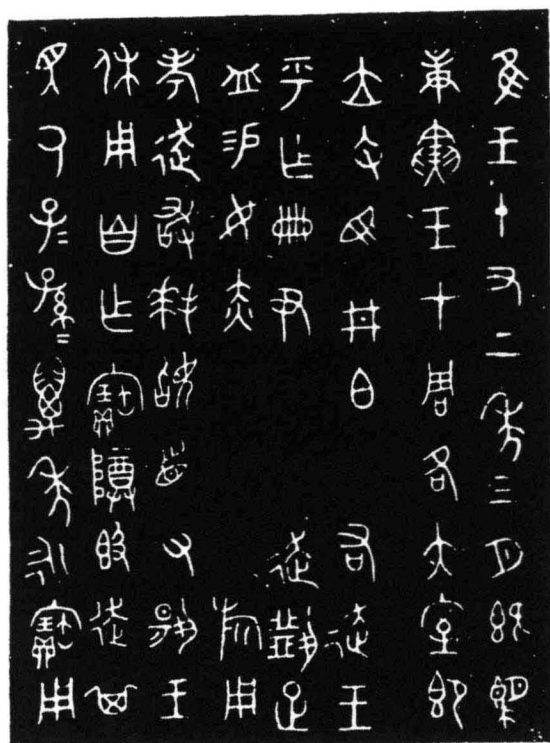 隹王十又二年三月既望
庚寅王才周各大室即
立司馬井白右走王
乎乍冊尹走疋
易女赤旂用
事走敢拜稽首對揚王
休用自乍寶尊簋走其
眾氒子=孫=萬年永寶用